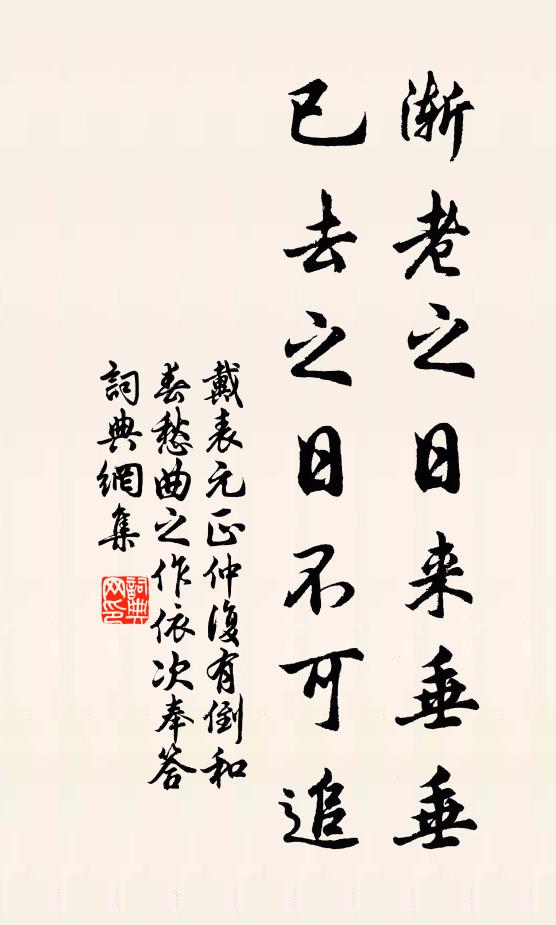 渐老之日来垂垂
已去之日不可追
戴表元正仲復有倒和
春愁曲之作依次奉答
詞典網集
詞典網印